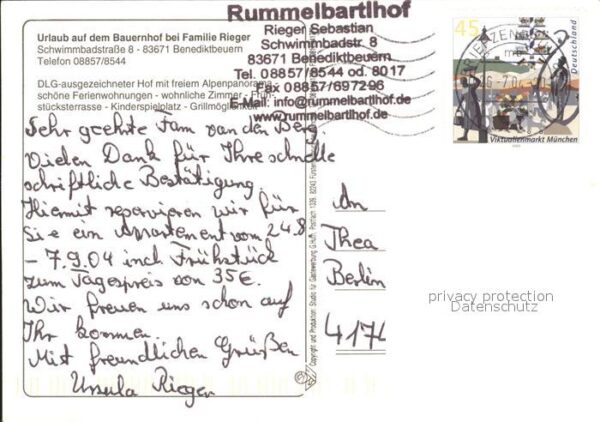 Rummelbartlhof
Rieger Sebastian
Schwimmbadstr. 8
83671 Benediktbeuern
Tel. 08857/8544 od. 8017
Fax 08857/697296
E-Mail: info@rummelbartlhof.de
www.rummelbartlhof.de
Urlaub auf dem Bauernhof bei Familie Rieger
Schwimmbadstraße 8 - 83671 Benediktbeuern
Telefon 08857/8544
DLG-ausgezeichneter Hof mit freiem Alpenpanorama -
schöne Ferienwohnungen - wohnliche Zimmer - Früh-
stücksterrasse - Kinderspielplatz - Grillmöglichkeit
Sehr geehrte Fam van den Berg.
Vielen Dank für Ihre schnelle
schriftliche Bestätigung.
Hiermit reservieren wir für
Sie ein Appartement vom 24.8
- 7.9.04 incl Frühstück
zum Tagespreis von 35€.
Wir freuen uns schon auf
Ihr kommen
Mit freundlichen Grüßen
Ursula Rieger
An
Thea
Berlin
4174
45
Deutschland
Viktualienmarkt München
privacy protection
Datenschutz